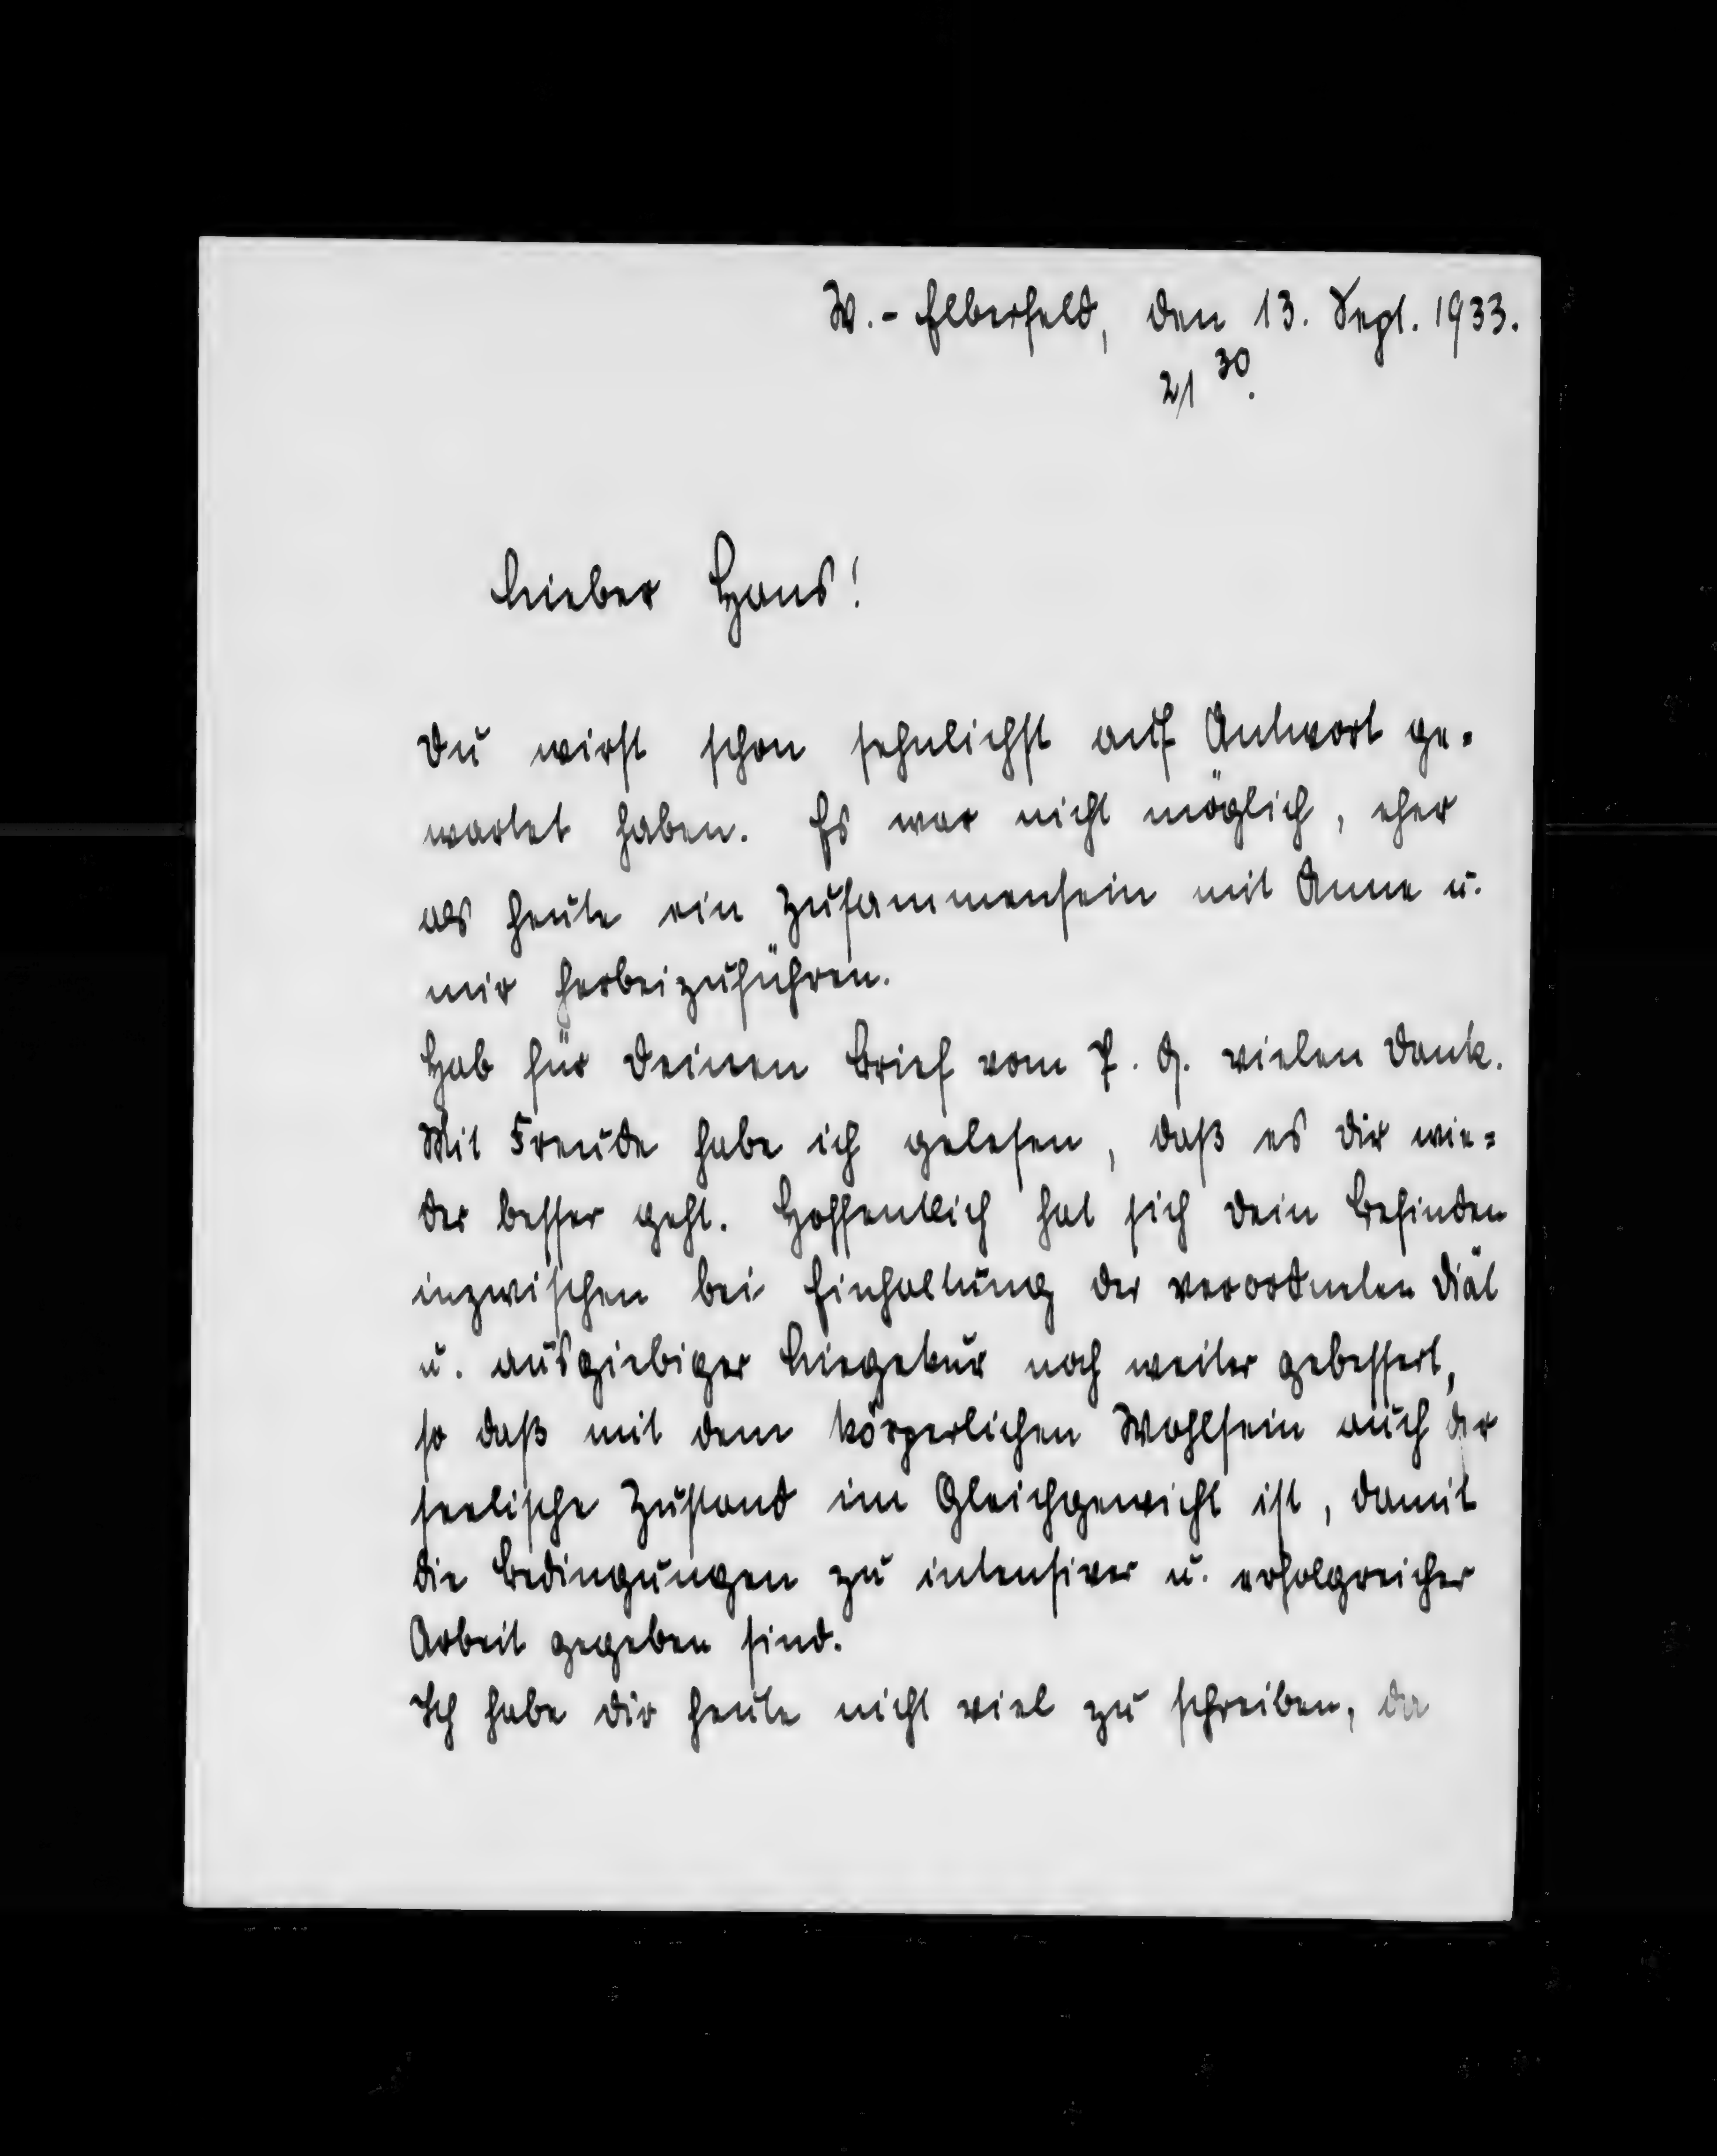 W.- Elberfeld, den 13. Sept. 1933.
21 30.
Lieber Hans!
Du wirst schon sehnlichst auf Antwort ge-
wartet haben. Es war nicht möglich, eher
als heute ein Zusammensein mit Anne u.
mir herbeizuführen.
Hab für Deinen Brief vom 7. 9. vielen Dank.
Mit Freude habe ich gelesen, daß es Dir wie-
der besser geht. Hoffentlich hat sich Dein Befinden
inzwischen bei Einhaltung der verordneten Diät
u. ausgiebiger Liegekur noch weiter gebessert,
so daß mit dem körperlichen Wohlsein auch der
seelische Zustand im Gleichgewicht ist, damit
die Bedingungen zu intensiver u. erfolgreicher
Arbeit gegeben sind.
Ich habe Dir heute nicht viel zu schreiben, da